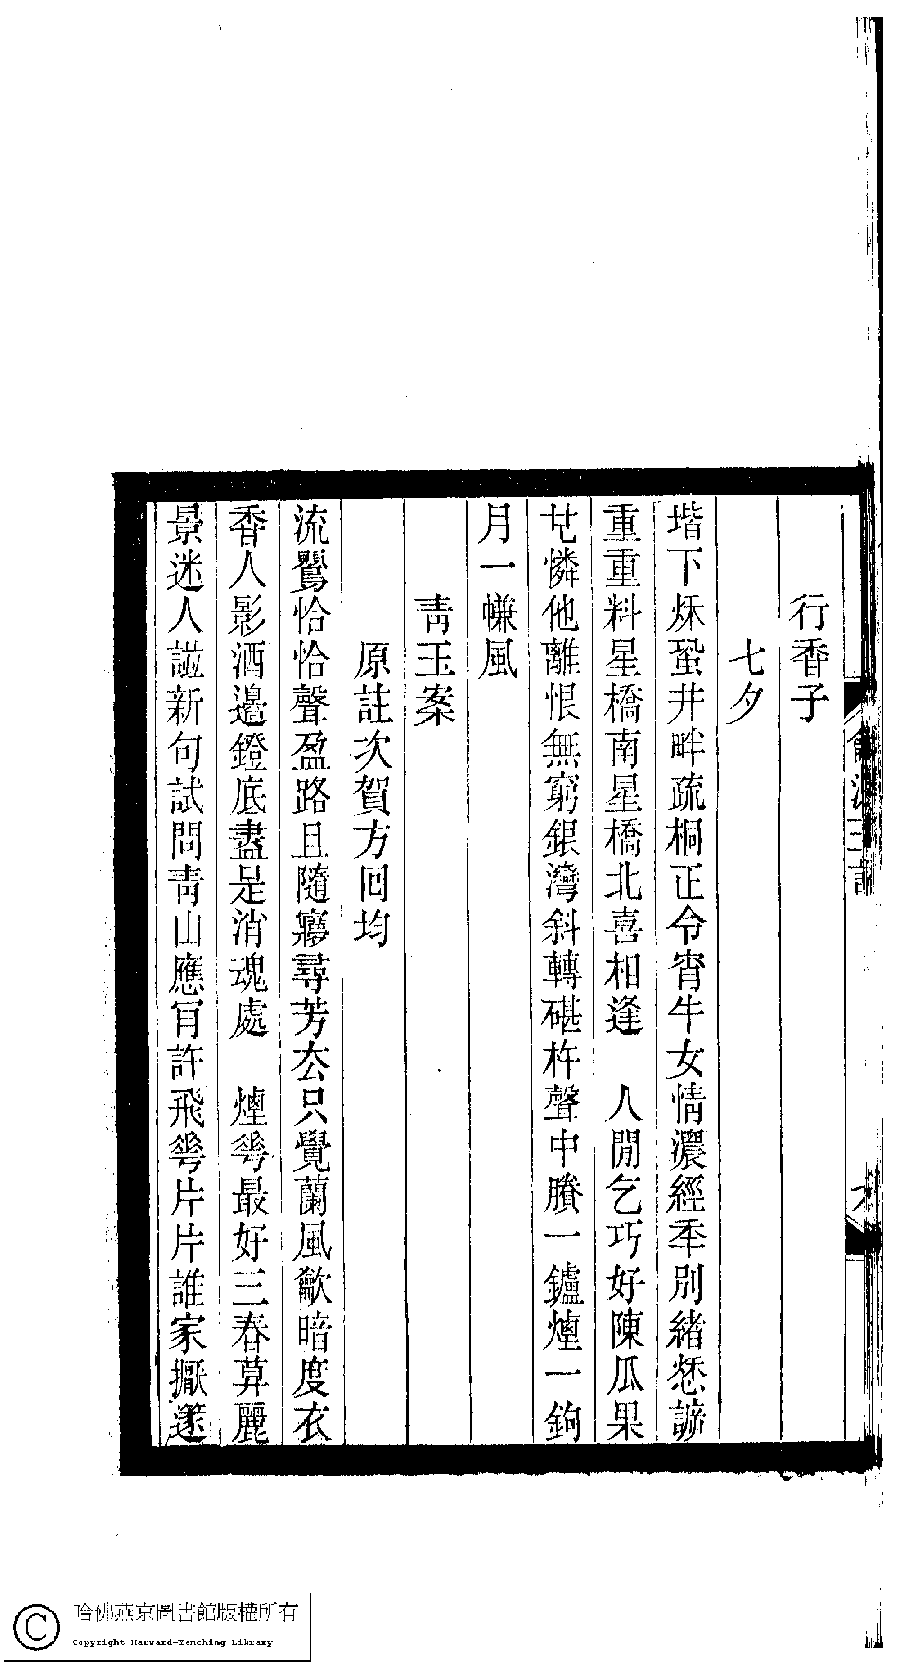 行香子
七夕
堦下秌蛩井畔疏桐正令宵牛女情濃經秊別緒愁諦
重重料星橋南星橋北喜相逢　人閒乞巧好陳瓜果
憐他離恨無窮銀灣斜轉碪杵聲中賸一鑪煙一鉤
月一㡘風
靑玉案
原註次賀方回均
流鶯恰恰聲盈路且隨尋芳厺只覺蘭風歗暗度衣
香人影酒邊鐙底盡是消魂處　煙蕚最好三春算麗
景迷人謚新句試問靑山應肎許飛蕚片片誰家擫邃
哈佛燕京圖書館版權所有
Copyright Harvard-Yenching Library